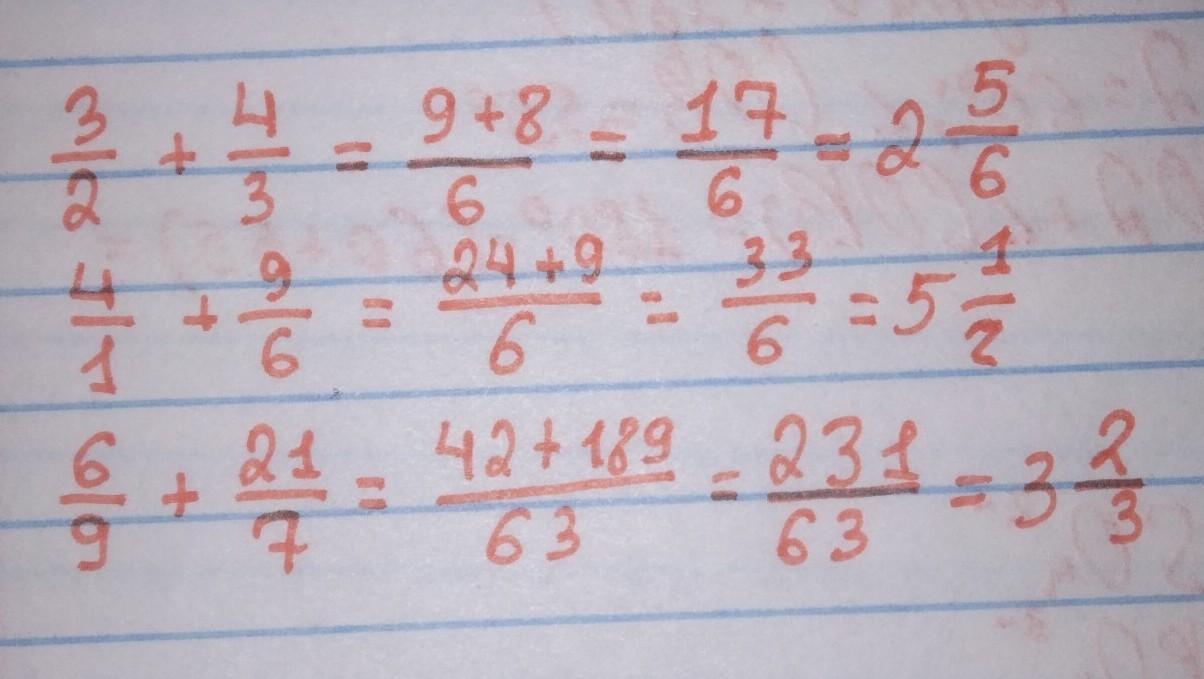 3/2 + 4/3 = (9+8)/6 = 17/6 = 2 5/6
4/1 + 9/6 = (24+9)/6 = 33/6 = 5 1/2
6/9 + 21/7 = (42+189)/63 = 231/63 = 3 2/3